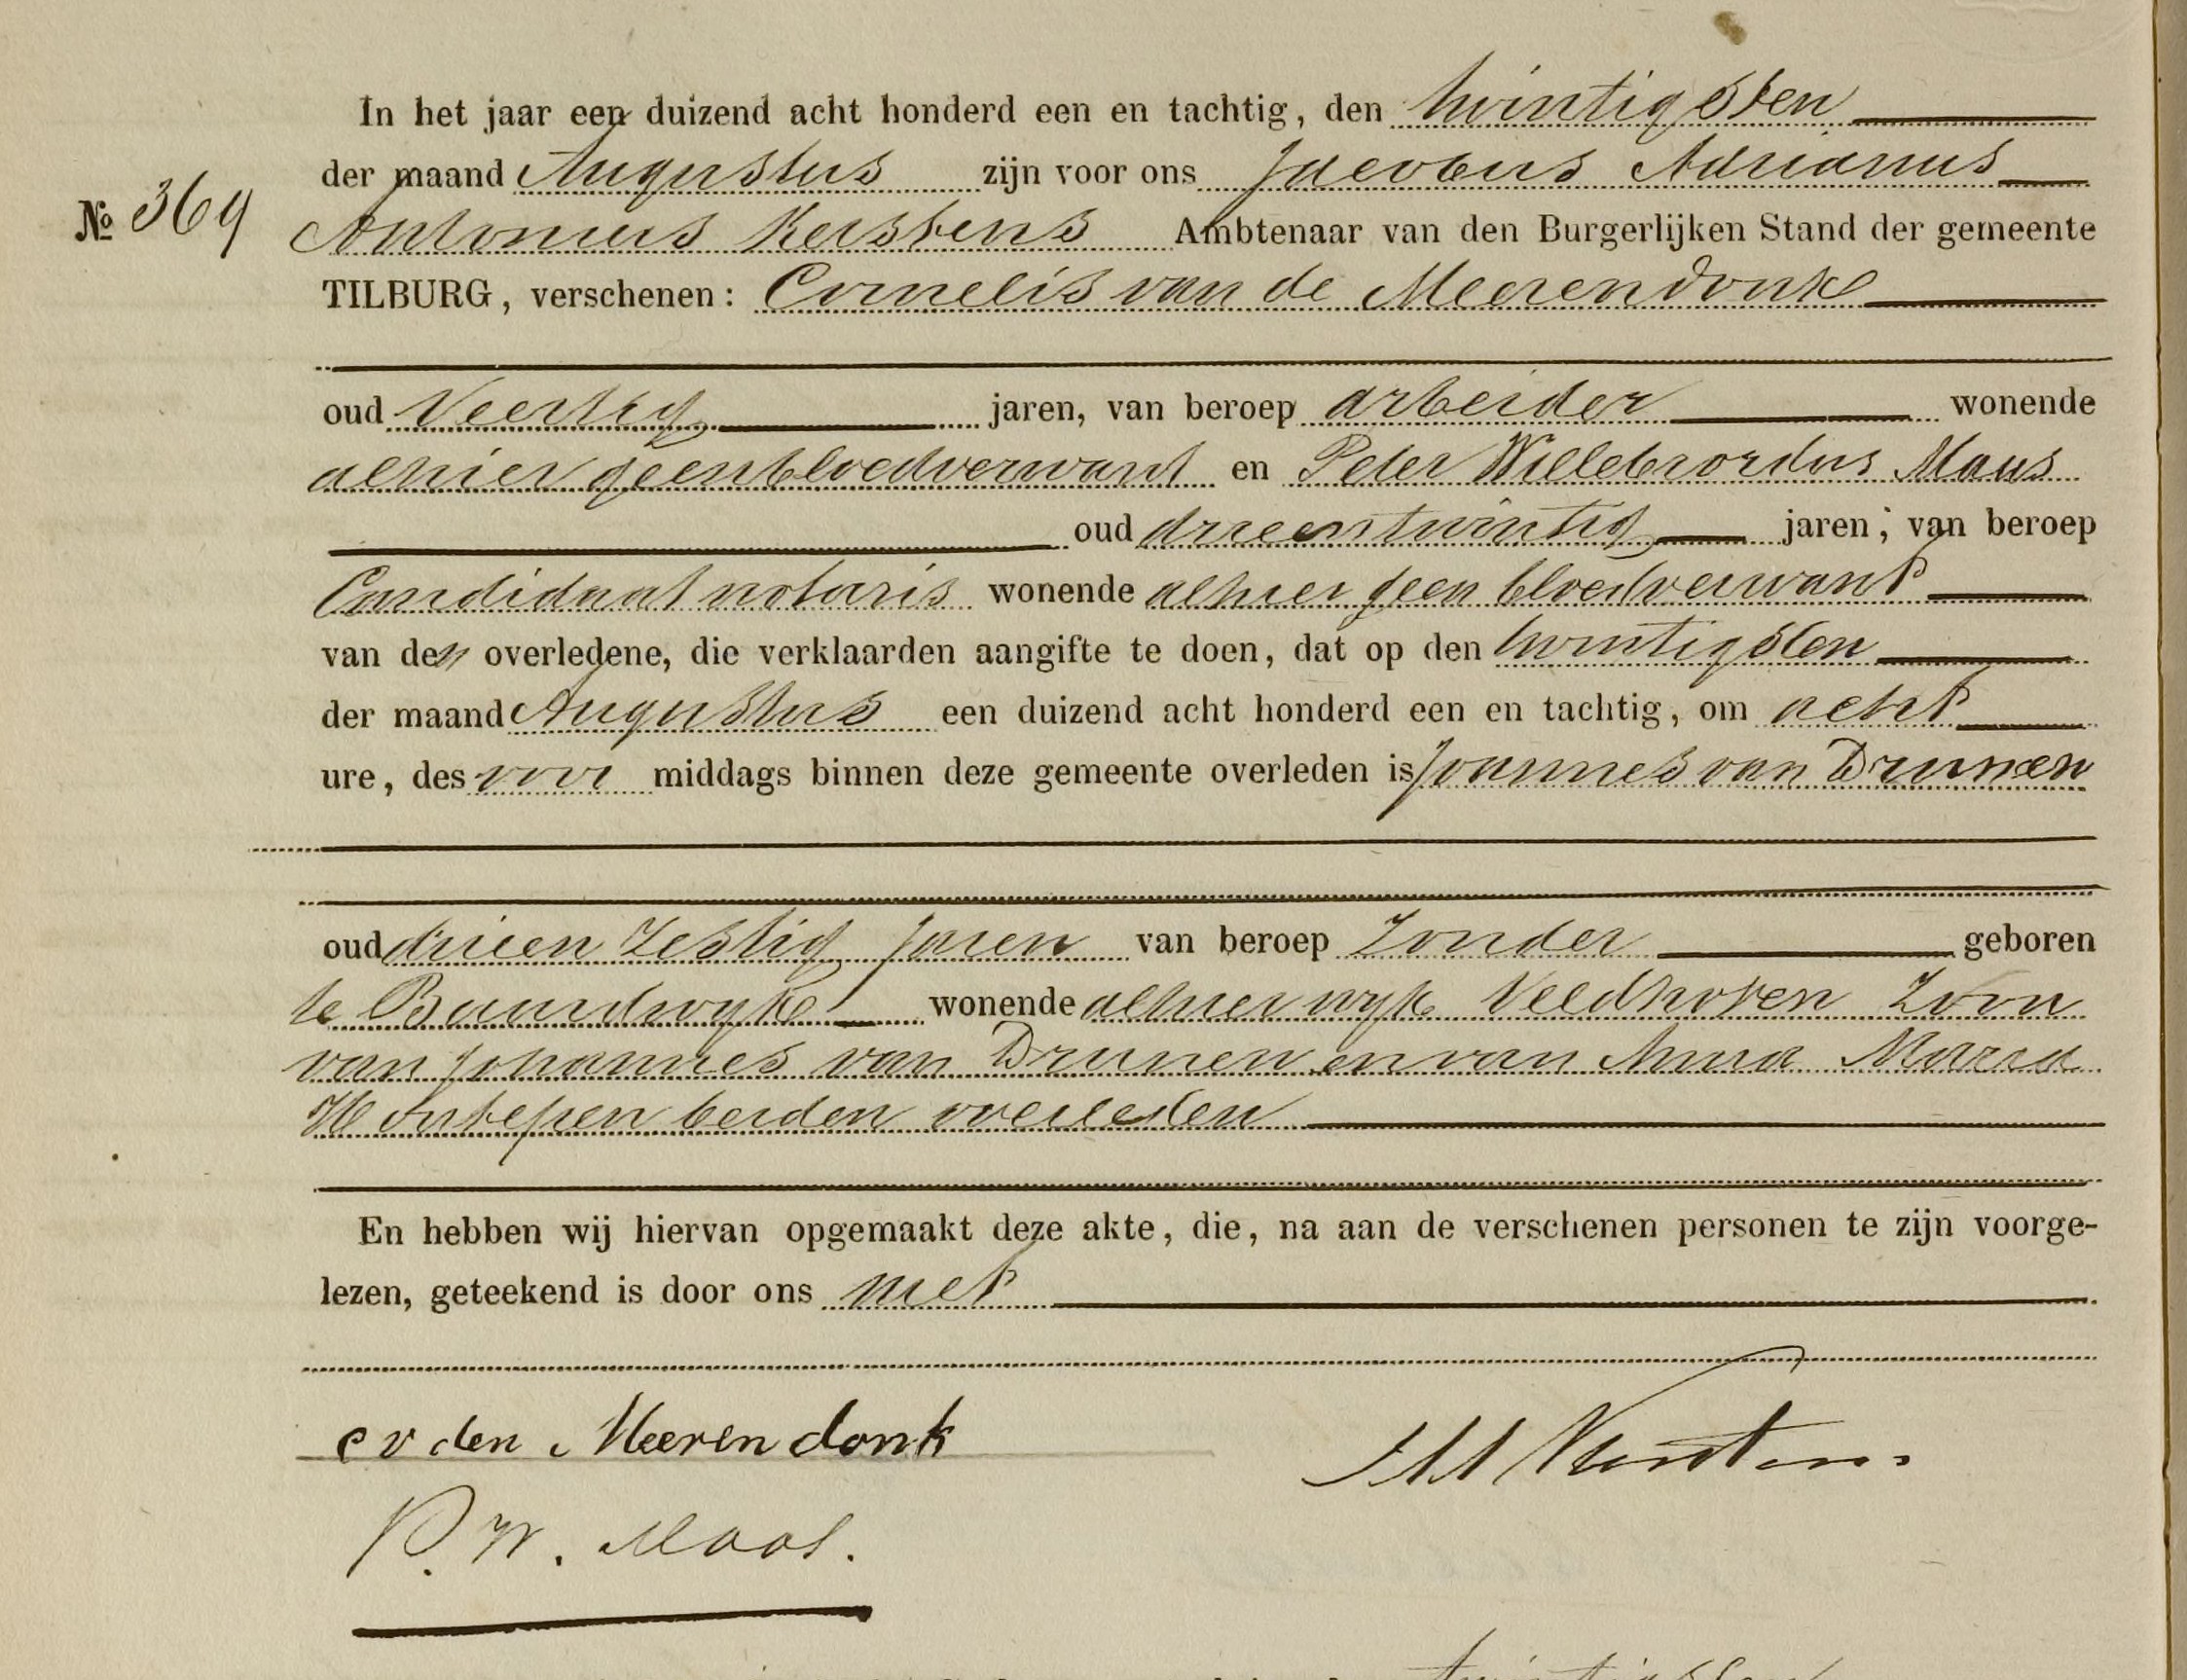 In het jaar een duizend acht honderd een en tachtig, den twintigsten
der maand Augustus zijn voor ons Jacobus Adrianus
№ 369 Antonius Kerstens Ambtenaar van den Burgerlijken Stand der gemeente
TILBURG, verschenen: Cornelis van de Meerendonk
oud Veertig jaren, van beroep arbeider wonende
alhier geen bloedverwant en Peter Willebrordus Maas
oud drieentwintig jaren, van beroep
Candidaat notaris wonende alhier geen bloedverwant
van den overledene, die verklaarden aangifte te doen, dat op den twintigsten
der maand Augustus een duizend acht honderd een en tachtig, om acht
ure, des voor middags binnen deze gemeente overleden is Joannes van Drunen
oud drieen zestig jaren van beroep zonder geboren
te Baardwyk wonende alhier wyk Veldhoven Zoon
van Johannes van Drunen en van Anna Maria
beiden overleden
En hebben wij hiervan opgemaakt deze akte, die, na aan de verschenen personen te zijn voorge-
lezen, geteekend is door ons met
c v den Meerendonk
Kerstens
P. W. Maas.